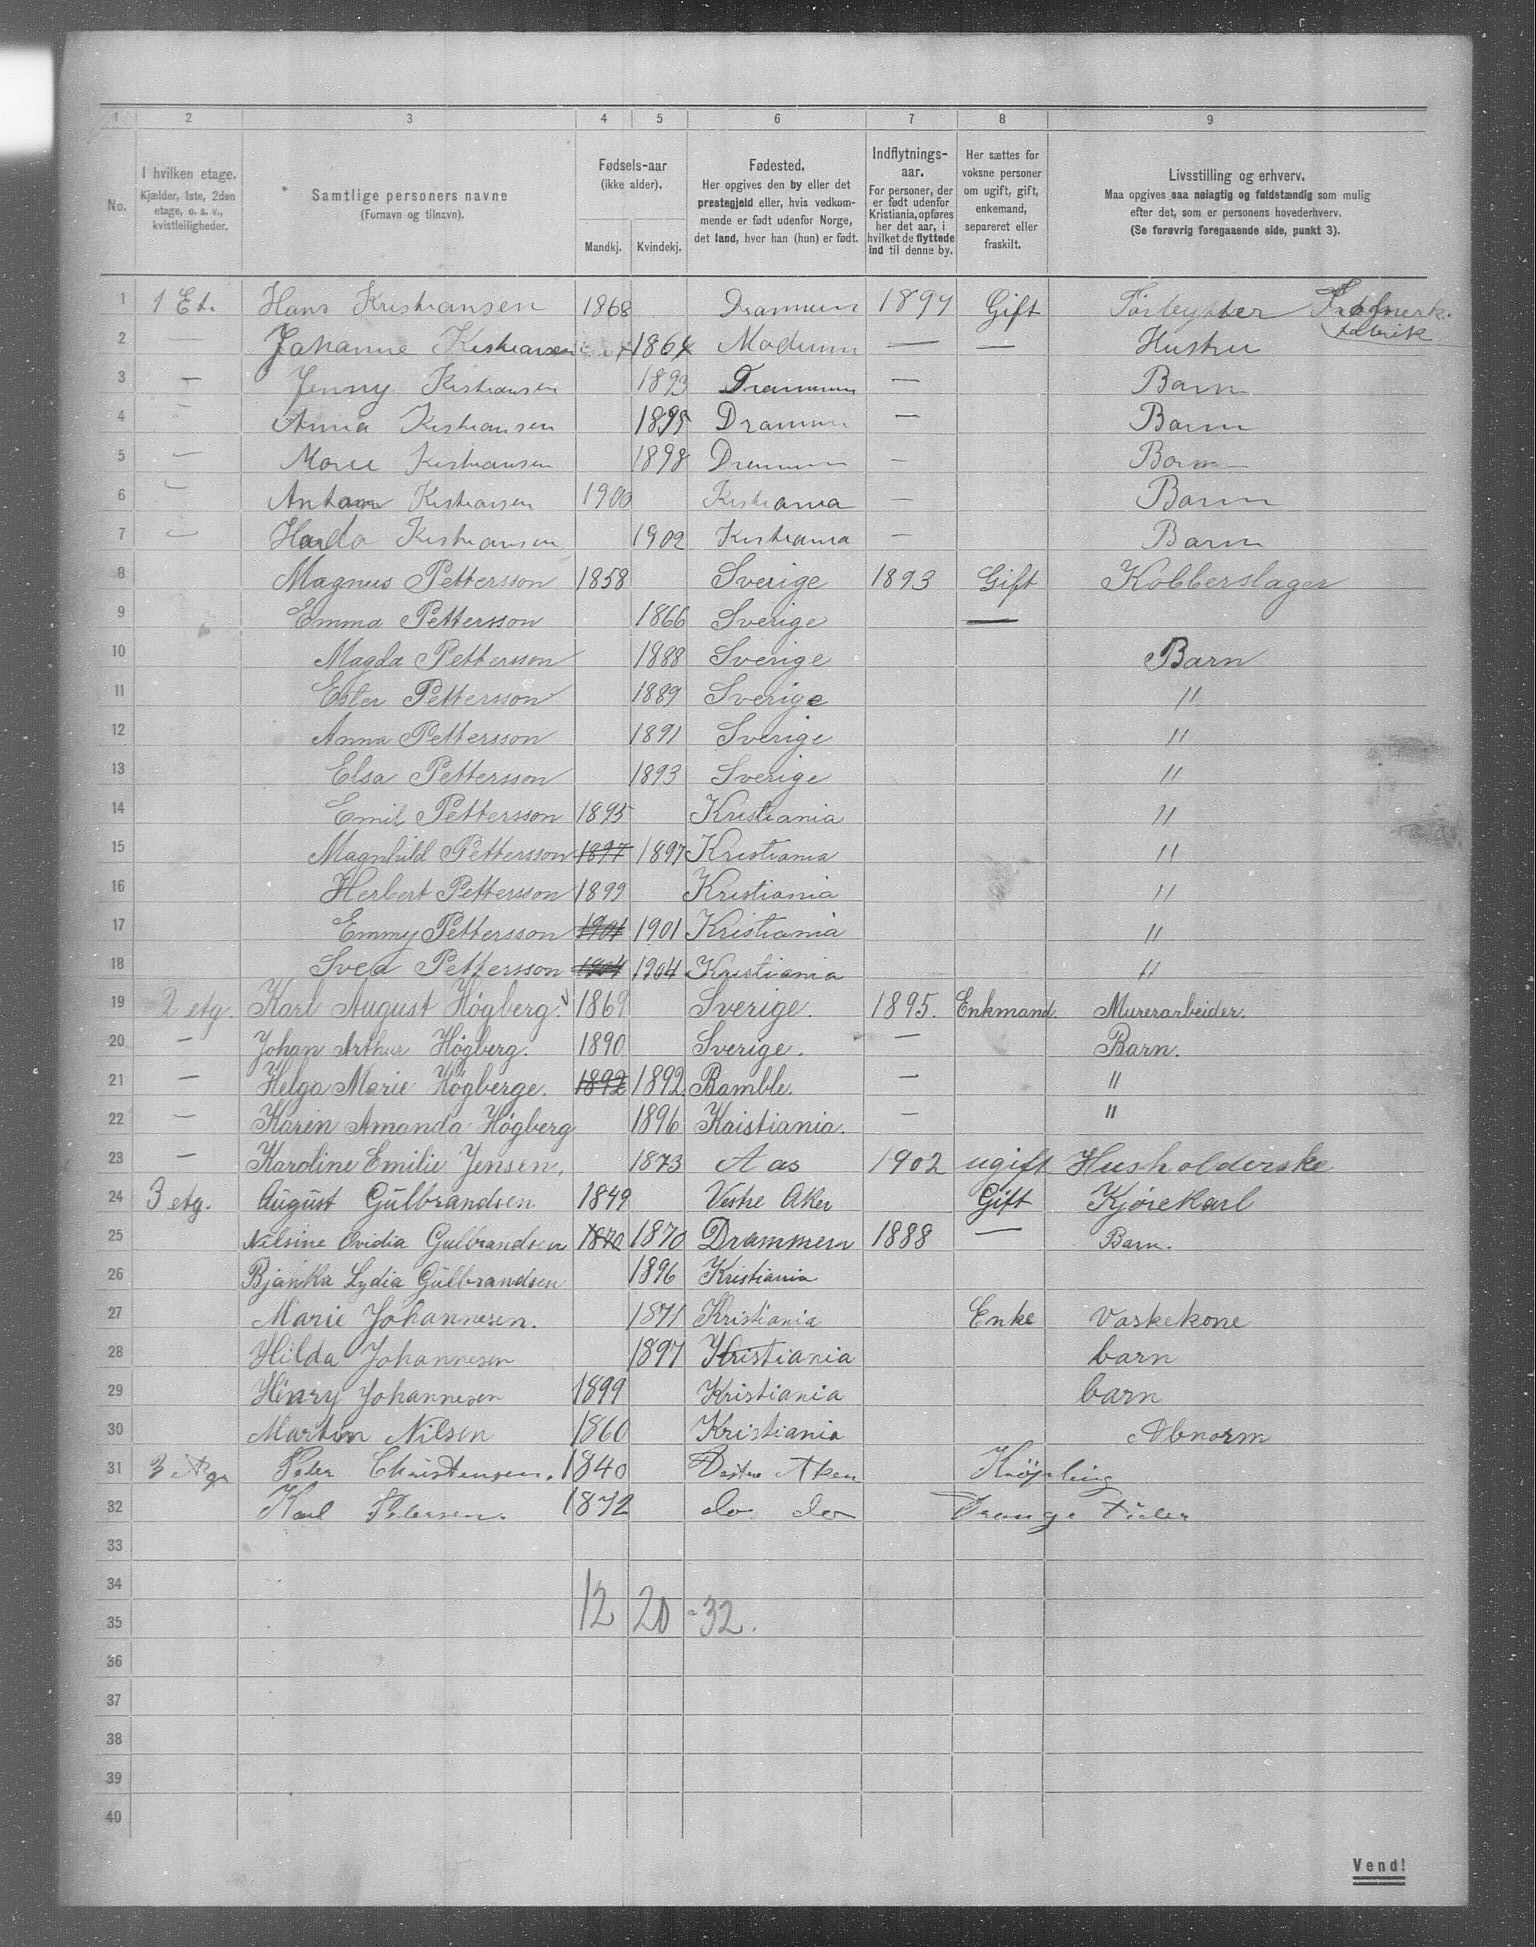 1 2 3 4 5 6 7 8 9
No. I hvilken etage. Kjælder, 1ste, 2den etage, o. s. v., kvistleiligheder. Samtlige personers navne (Fornavn og tilnavn). Fødsels-aar (ikke alder). Mandkj. Kvindekj. Fødested. Her opgives den by eller det prestegjeld eller, hvis vedkommende er født udenfor Norge, det land, hvor han (hun) er født. Indflytnings-aar. For personer, der er født udenfor Kristiania, opføres her det aar, i hvilket de flyttede ind til denne by. Her sættes for voksne personer om ugift, gift, enkemand, separeret eller fraskilt. Livsstilling og erhverv. Maa opgives saa nøiagtig og fuldstændig som mulig efter det, som er personens hovederhverv. (Se forøvrig foregaaende side, punkt 3).
1 1 Et. Hans Kristiansen 1868 Drammen 1899 Gift fabrik
2 — Johanne Kristiansen 1864 Modum — — Hustru
3 — Jenny Kristiansen 1893 Drammen — Barn
4 — Anna Kristiansen 1895 Drammen — Barn
5 — Marie Kristiansen 1898 Drammen — Barn
6 — Anton Kristiansen 1900 Kristiania — Barn
7 — Kristiansen 1902 Kristiania — Barn
8 Magnus Pettersson 1858 Sverige 1893 Gift Kobberslager
9 Emma Pettersson 1866 Sverige —
10 Magda Pettersson 1888 Sverige Barn
11 Ester Pettersson 1889 Sverige "
12 Anna Pettersson 1891 Sverige "
13 Elsa Pettersson 1893 Sverige "
14 Emil Pettersson 1895 Kristiania "
15 Magnhild Pettersson 1897 1897 Kristiania "
16 Herbert Pettersson 1899 Kristiania "
17 Emmy Pettersson 1901 1901 Kristiania "
18 Svea Pettersson 1904 1904 Kristiania "
19 2 etg. Karl August Högberg. 1869 Sverige. 1895. Enkmand. Murerarbeider.
20 — Johan Arthur Högberg. 1890 Sverige. — Barn.
21 — Helga Marie Högberge. 1892 1892. Bamble. — "
22 — Karen Amanda Högberg 1896 Kristiania. — "
23 — Karoline Emilie Jensen. 1873 Aas 1902 ugift Husholderske
24 3 etg. August Gülbrandsen 1849 Vestre Aker Gift Kjörekarl
25 Nilsine Ovidia Gulbrandsen 1870 1870 Drammen 1888 — Barn.
26 Bjanka Lydia Gülbrandsen 1896 Kristiania
27 Marie Johannesen. 1871 Kristiania Enke Vaskekone
28 Hilda Johannesen 1897 Kristiania barn
29 Henry Johannesen 1899 Kristiania barn
30 Martin Nilsen 1860 Kristiania Abnorm
31 3 Peter Christensen. 1840 Vestre Aken
32 Karl Petersen. 1872 do do
33
34 12 20 - 32.
35
36
37
38
39
40
Vend!